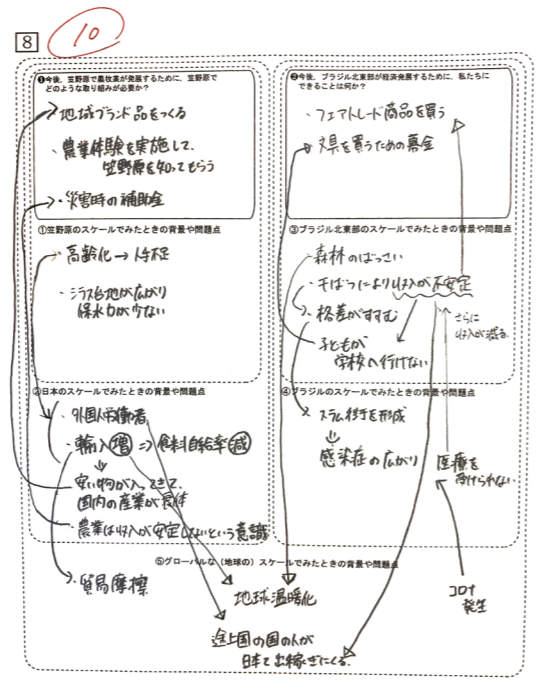 8
10
❶今後、笠野原で農牧業が発展するために、笠野原で
どのような取り組みが必要か？
地域ブランド品をつくる
・農業体験を実施して、
笠野原を知ってもらう
・災害時の補助金
①笠野原のスケールでみたときの背景や問題点
・高齢化→人手不足
・シラス台地が広がり
保水力が少ない
②日本のスケールでみたときの背景や問題点
・外国人労働者
・輸入増⇒食料自給率減
⇓
安い物が入ってきて、
国内の産業が衰体
農業は収入が安定しないという意識
・貿易摩擦
❷今後、ブラジル北東部が経済発展するために、私たちに
できることは何か？
・フェアトレード商品を買う
・文具を買うための募金
③ブラジル北東部のスケールでみたときの背景や問題点
・森林のばっさい
・干ばつにより収入が不安定
・格差がすすむ
・子どもが
学校へ行けない
さらに
収入が減る
④ブラジルのスケールでみたときの背景や問題点
・スラム街を形成
⇓
感染症の広がり
医療を
受けられない
コロナ
発生
⑤グローバルな（地球の）スケールでみたときの背景や問題点
地球温暖化
途上国の国の人が
日本で出稼ぎにくる